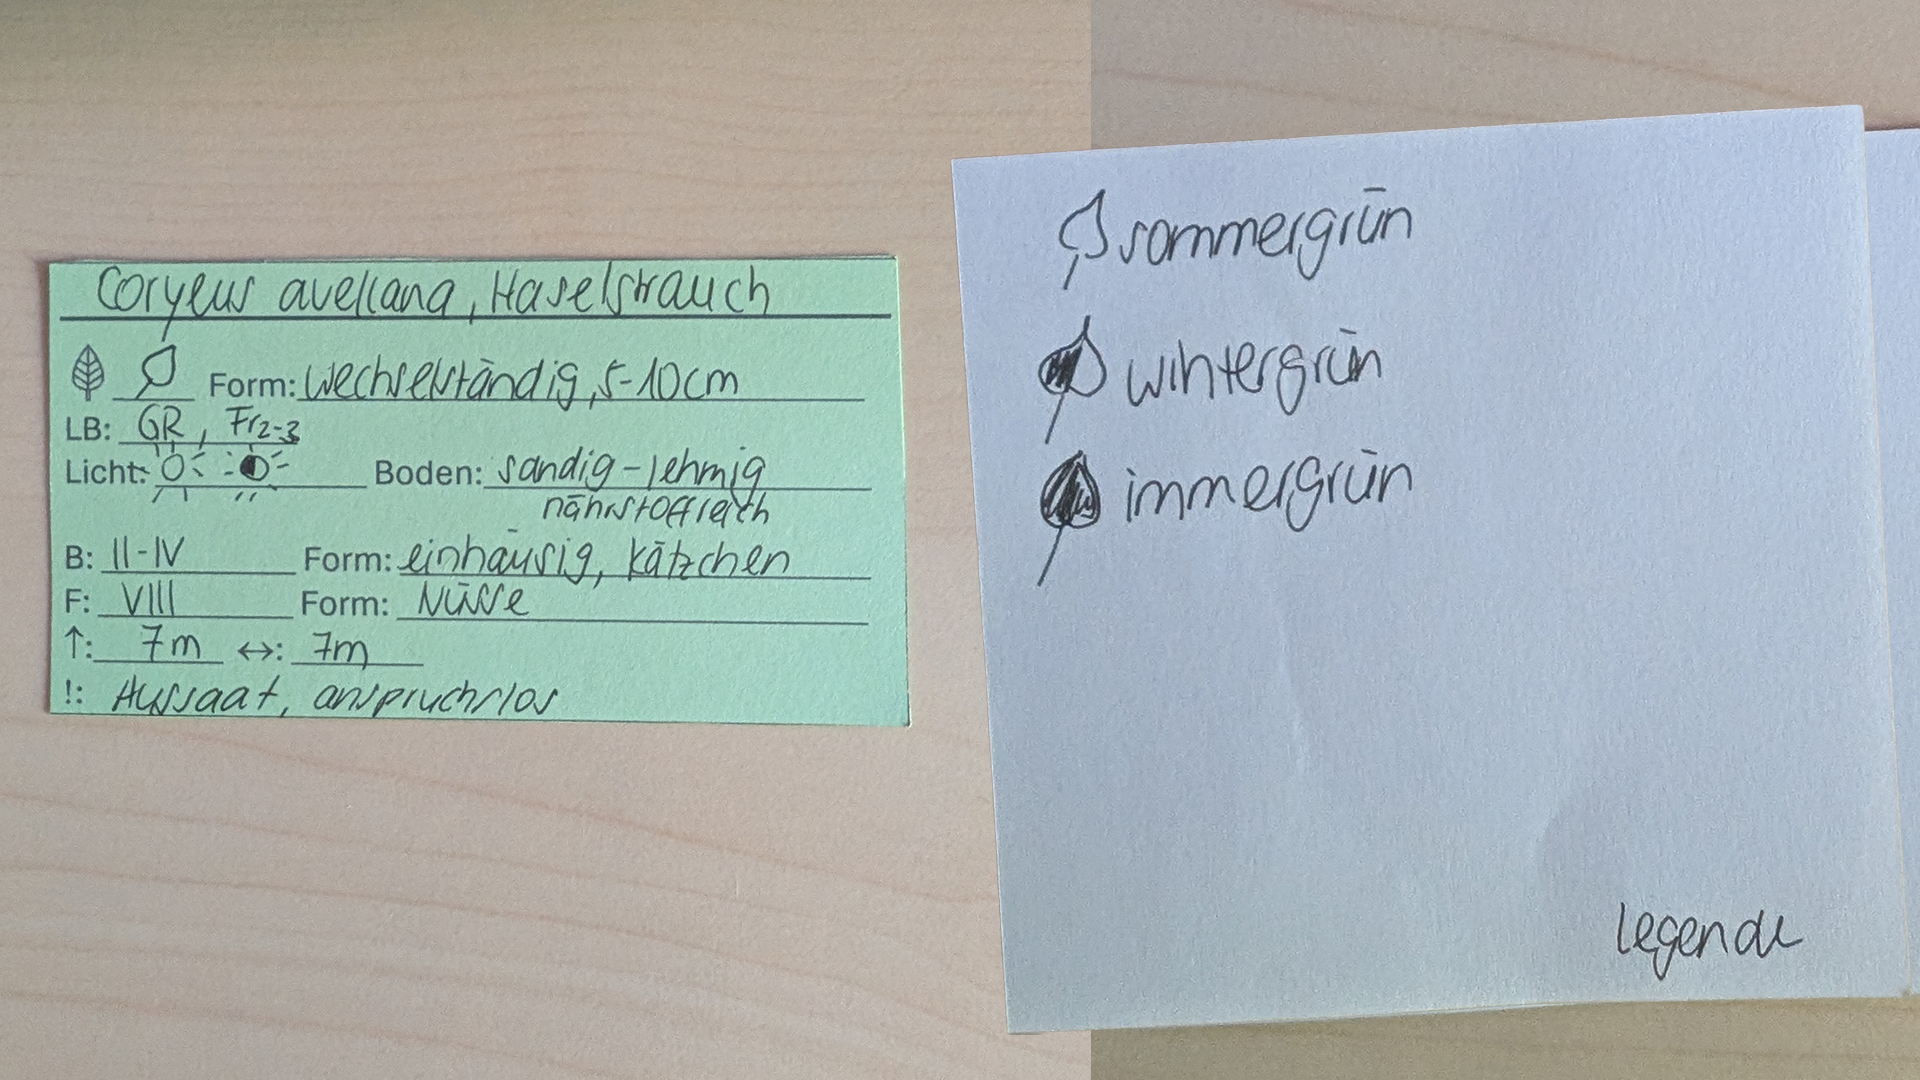 Coryeus avellana, Haselstrauch
Form: wechselständig, 5-10cm
LB: GR, Fr2-3
Licht: Boden: sandig-lehmig
nährstoffreich
B: II-IV Form: einhäusig, Kätzchen
F: VIII Form: Nüsse
↑: 7m ↔: 7m
!: Aussaat, anspruchslos
sommergrün
wintergrün
immergrün
Legende